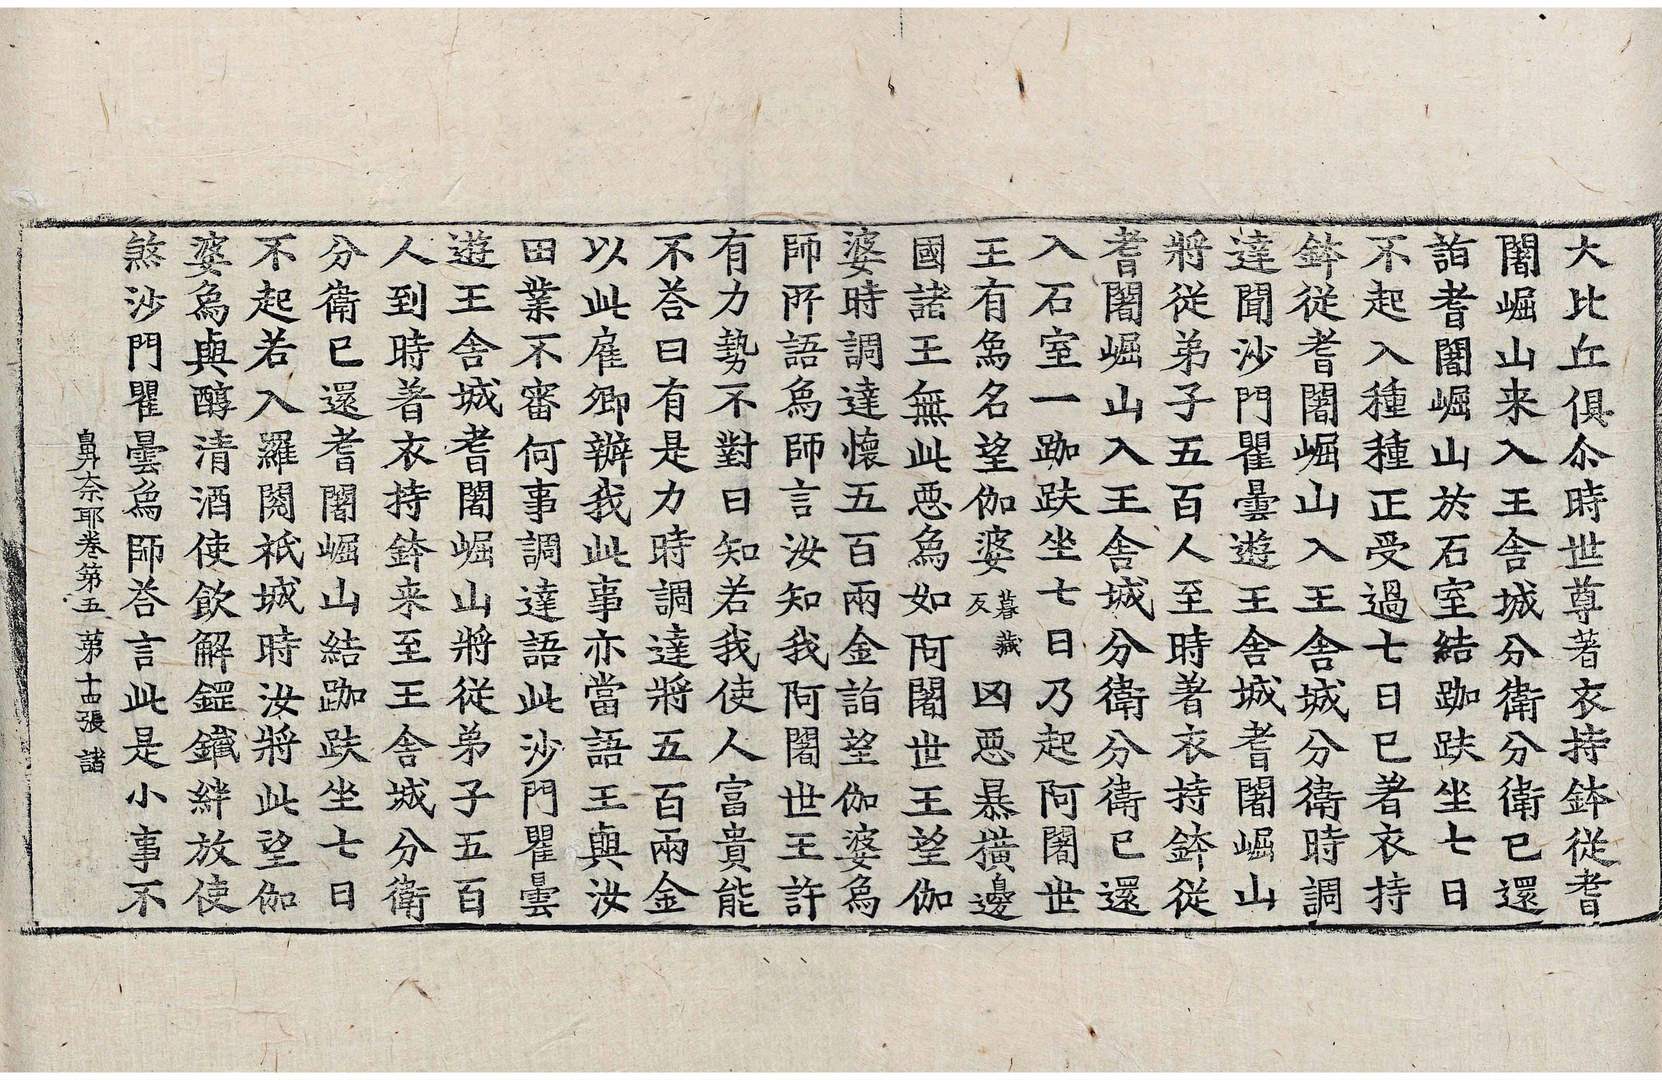 大比丘俱尒時世尊著衣持鉢從耆
闍崛山来入王舍城分衛分衛已還
詣耆闍崛山於石室結跏趺坐七日
不起入種種正受過七日已著衣持
鉢從耆闍崛山入王舍城分衛時調
達聞沙門瞿曇遊王舍城耆闍崛山
將從弟子五百人至時著衣持鉢從
耆闍崛山入王舍城分衛分衛已還
入石室一跏趺坐七日乃起阿闍世
王有鳥名望伽婆暮薉反凶惡暴撗邊
國諸王無此惡鳥如阿闍世王望伽
婆時調達懷五百兩金詣望伽婆鳥
師所語鳥師言汝知我阿闍世王許
有力勢不對曰知若我使人富貴能
不荅曰有是力時調達將五百兩金
以此雇卿辦我此事亦當語王與汝
田業不審何事調達語此沙門瞿曇
遊王舍城耆闍崛山將從弟子五百
人到時著衣持鉢来至王舍城分衛
分衛已還耆闍崛山結跏趺坐七日
不起若入羅閱祇城時汝將此望伽
婆鳥與醇清酒使飲解鋜鐵絆放使
煞沙門瞿曇鳥師荅言此是小事不
鼻奈耶卷第五 第十四張 諸